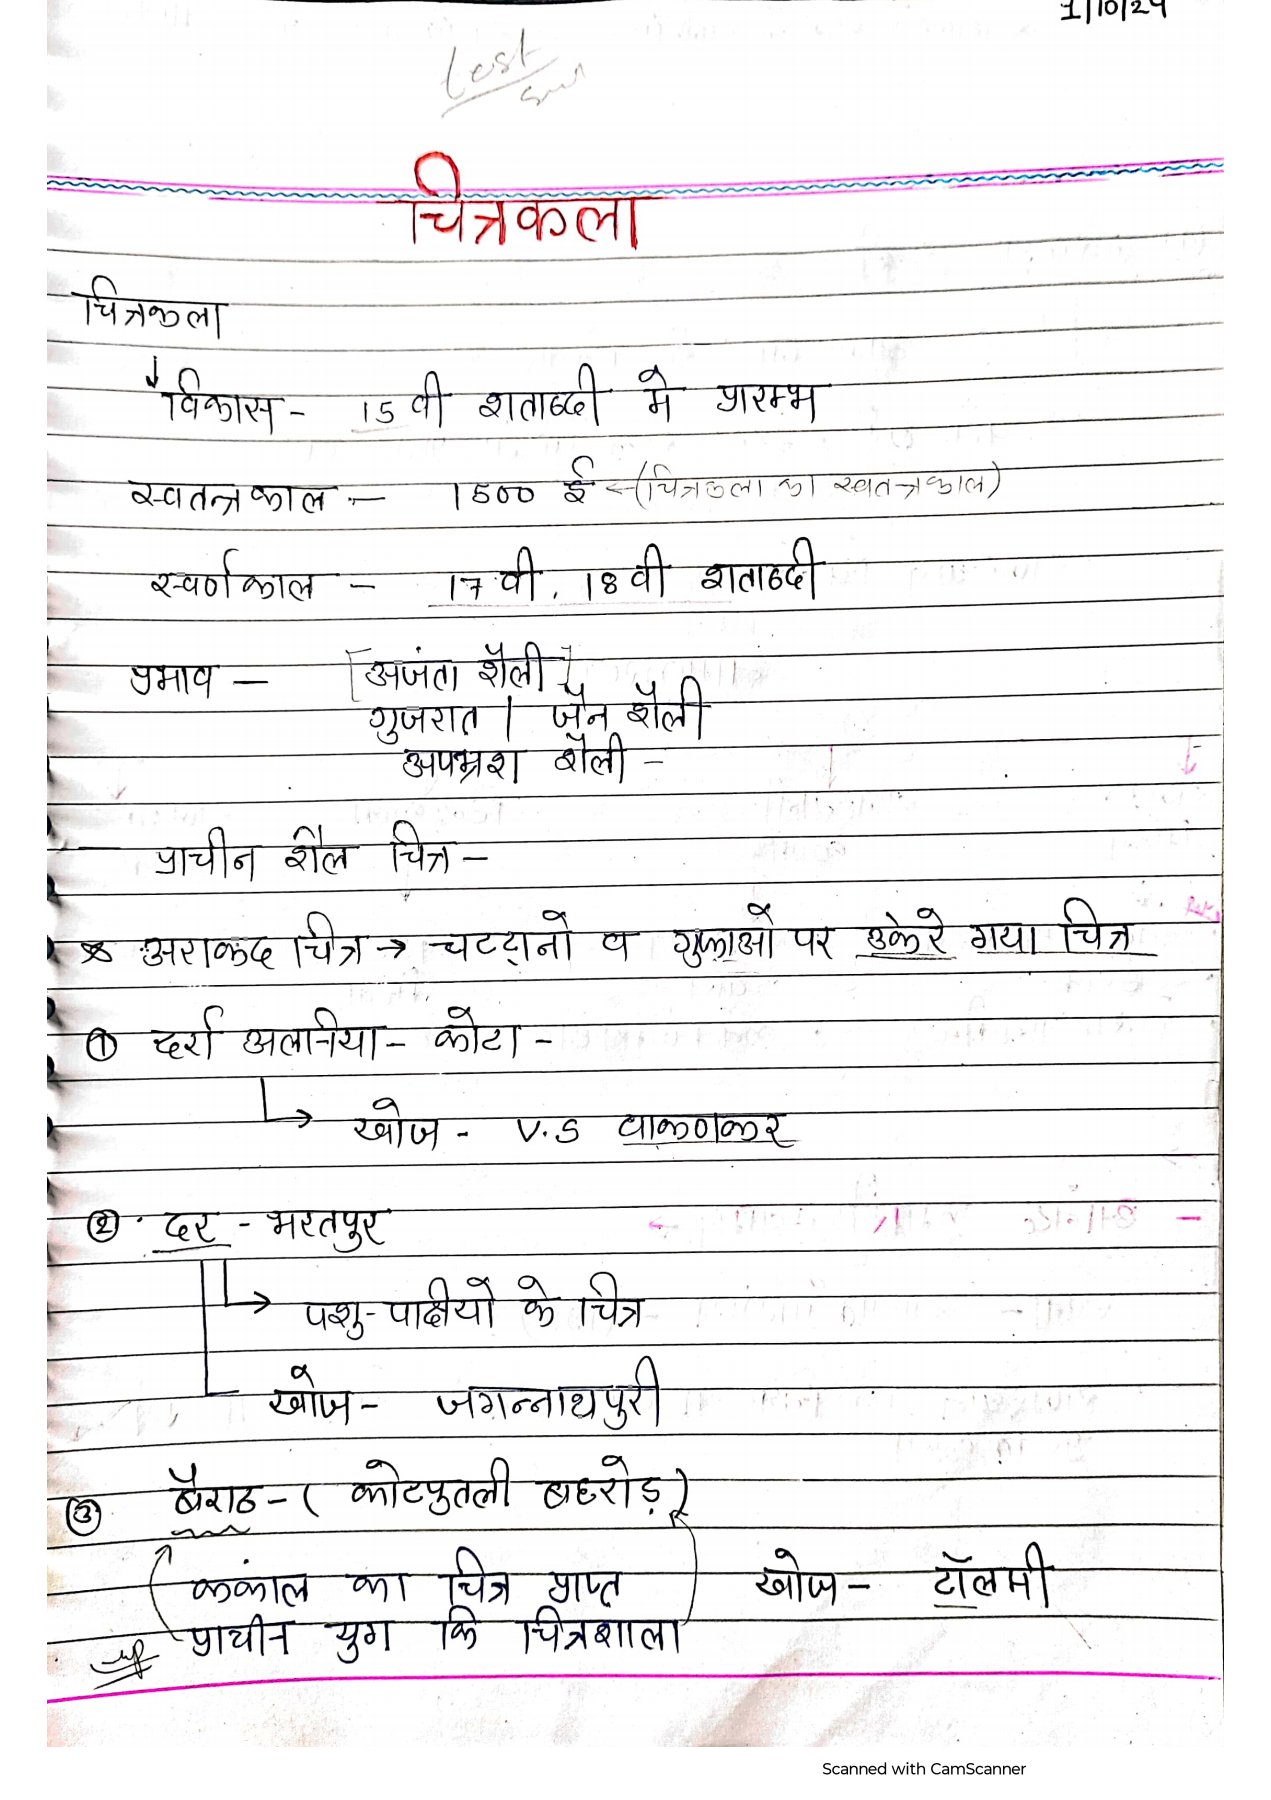 1/10/24
Test
चित्रकला
चित्रकला
↓
विकास - 15 वी शताब्दी मे प्रारम्भ
स्वतन्त्रकाल :- 1500 ई ← (चित्रकला का स्वतन्त्रकाल)
स्वर्णकाल - 17 वी, 18 वी शताब्दी
प्रभाव - [अजंता शैली]
गुजरात / जैन शैली
अपभ्रश शैली -
प्राचीन शैल चित्र -
* अराकद चित्र → चटटानो व गुफाओ पर उकेरे गया चित्र
① दर्रा अलनिया - कोटा -
↳ खोज - V.S वाकणकर
② दर - भरतपुर
↳ पशु-पाक्षीयो के चित्र
खोज - जगन्नाथपुरी
③ बैराठ - ( कोटपुतली बहरोड़ )
कंकाल का चित्र प्राप्त खोज - टॉलमी
प्राचीन युग कि चित्रशाला
Scanned with CamScanner